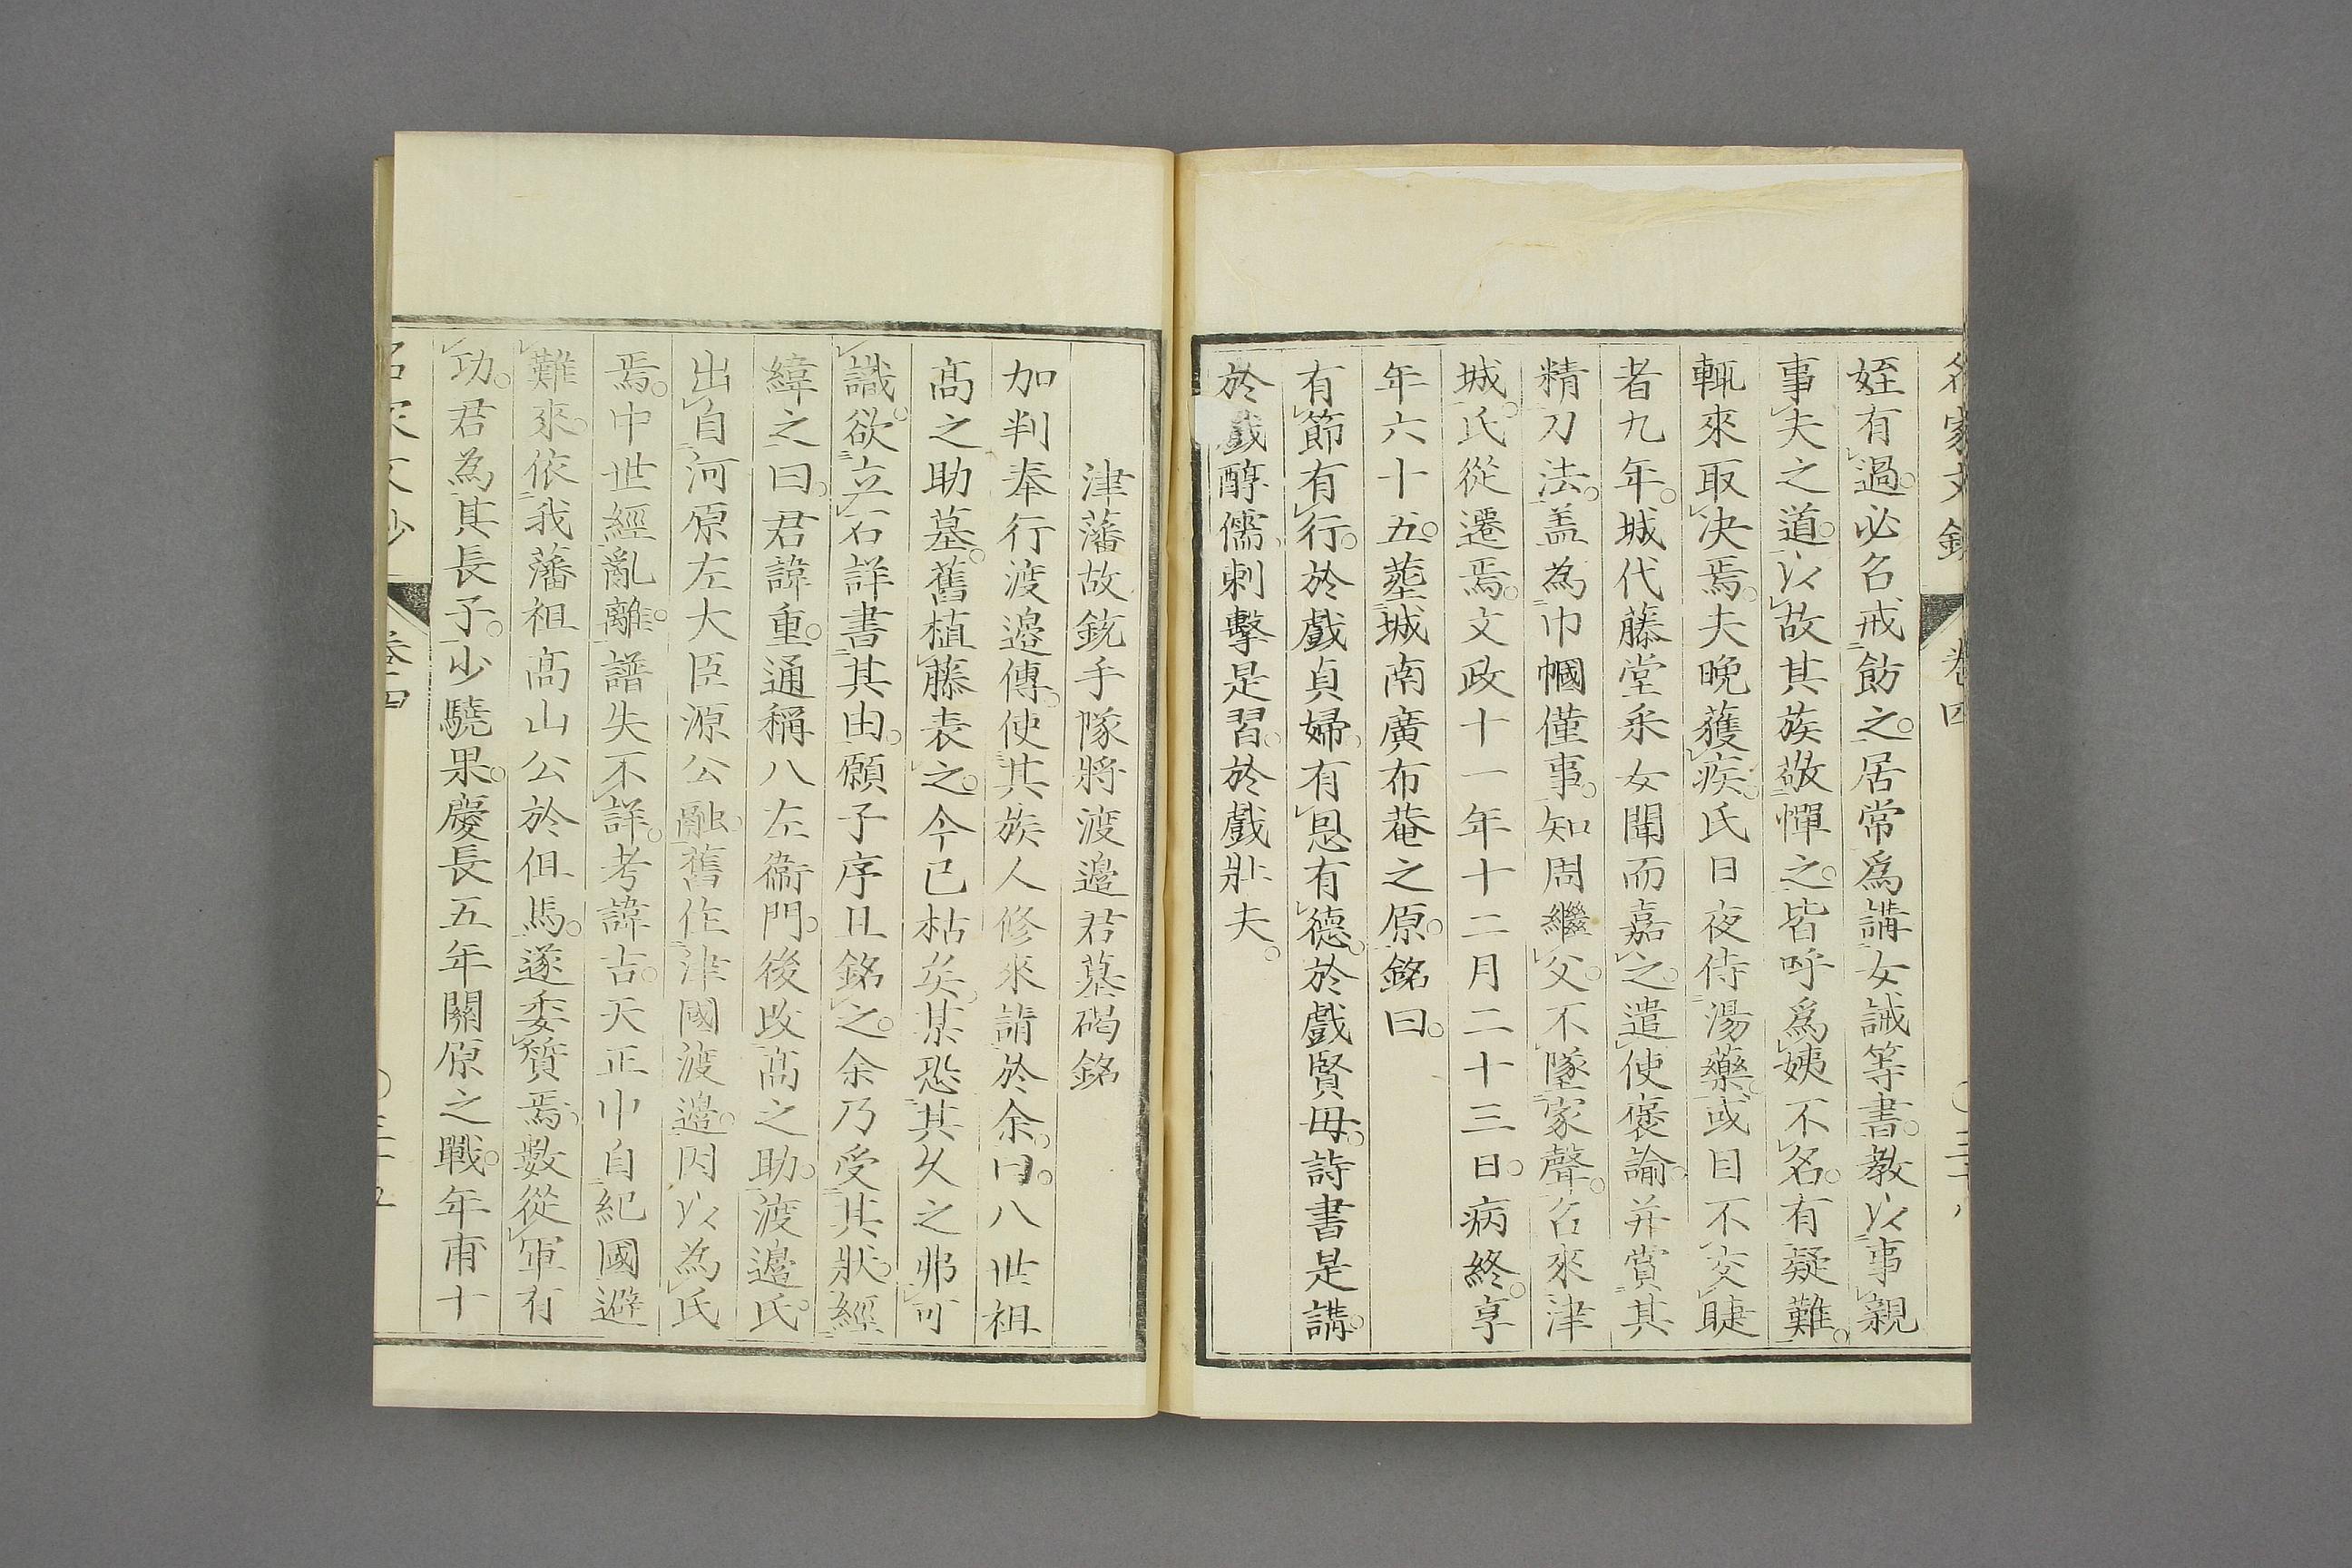 名家文鈔 卷四
姪有過。必召戒飭之。居常爲講女誡等書。教以事親
事夫之道。以故其族敬憚之。皆呼爲姨不名。有疑難。
輒來取決焉。夫晩獲疾。氏日夜侍湯藥。或目不交睫
者九年。城代藤堂釆女聞而嘉之。遣使褒諭。并賞其
精刀法。盖爲巾幗僅事。知周繼父。不墜家聲。召來津
城。氏從遷焉。文政十一年十二月二十三日。病終。享
年六十五。葬城南廣布菴之原。銘曰。
有節有行。於戲貞婦。有恩有德。於戲賢母。詩書是講。
於戲醇儒。刺擊是習。於戲壯夫。
津藩故銃手隊將渡邉君墓碣銘
加判奉行渡邉傳。使其族人修來請於余。曰。八世祖
高之助墓。舊植藤表之。今已枯矣。某恐其久之弗可
識。欲立石詳書其由。願子序且銘之。余乃受其狀。經
緯之曰。君諱重。通稱八左衞門。後改高之助。渡邉氏。
出自河原左大臣源公融。舊住津國渡邉。因以為氏
焉。中世經亂離。譜失不詳。考諱吉。天正中自紀國避
難來。依我藩祖高山公於但馬。遂委質焉。數從軍有
功。君為其長子。少驍果。慶長五年關原之戰。年甫十
名家文鈔 卷四